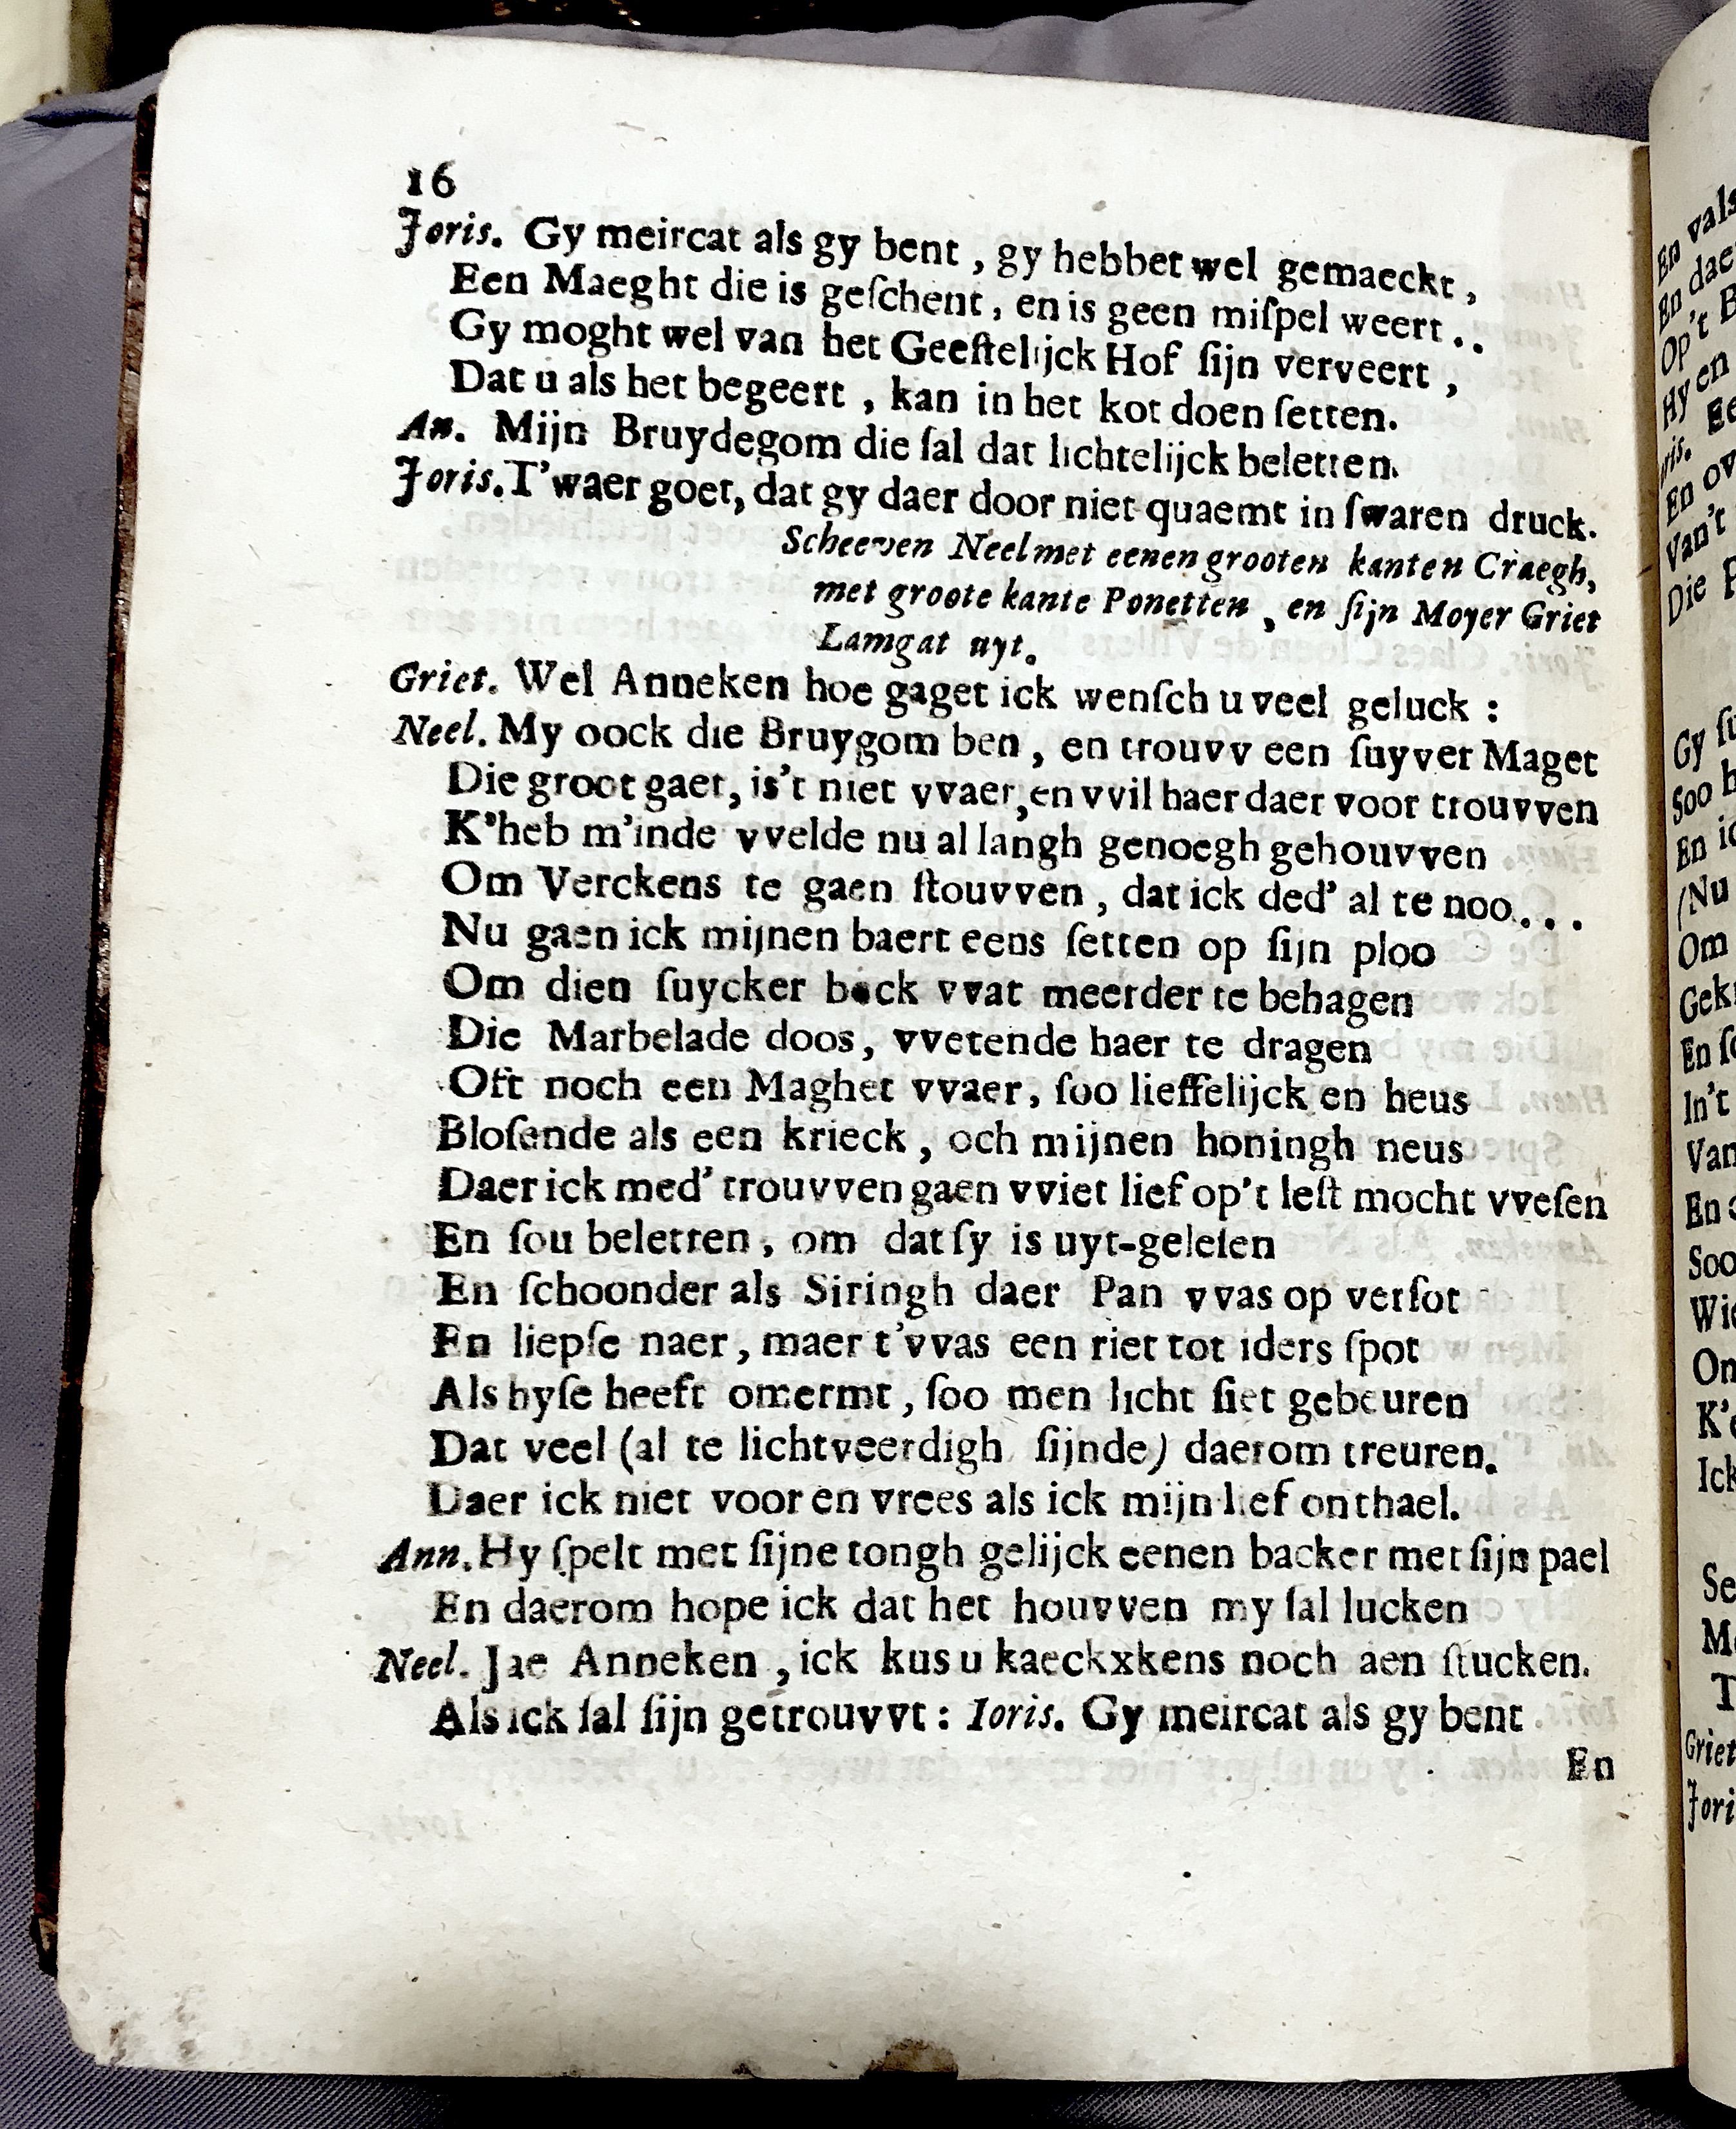 16
Joris. Gy meircat als gy bent , gy hebbet wel gemaeckt ,
Een Maeght die is geſchent , en is geen miſpel weert . .
Gy moght wel van het Geeſtelijck Hof ſijn verveert ,
Dat u als het begeert , kan in het kot doen ſetten.
An. Mijn Bruydegom die ſal dat lichtelijck beletten.
Joris. T'waer goet, dat gy daer door niet quaemt in ſwaren druck.
Scheeven Neel met eenen grooten kanten Craegh,
met groote kante Ponetten , en ſijn Moyer Griet
Lamgat uyt.
Griet. Wel Anneken hoe gaget ick wenſch u veel geluck :
Neel. My oock die Bruygom ben , en trouvv een ſuyver Maget
Die groot gaet, is't niet vvaer, en vvil haer daer voor trouvven
K'heb m'inde vvelde nu al langh genoegh gehouvven
Om Verckens te gaen ſtouvven , dat ick ded' al te noo. . .
Nu gaen ick mijnen baert eens ſetten op ſijn ploo
Om dien ſuycker bock vvat meerder te behagen
Die Marbelade doos, vvetende haer te dragen
Oft noch een Maghet vvaer, ſoo lieffelijck en heus
Bloſende als een krieck , och mijnen honingh neus
Daer ick med' trouvven gaen vviet lief op't leſt mocht vveſen
En ſou beletten , om dat ſy is uyt-geleſen
En ſchoonder als Siringh daer Pan vvas op verſot
En liepſe naer, maer t'vvas een riet tot iders ſpot
Als hyſe heeft omermt, ſoo men licht ſiet gebeuren
Dat veel (al te lichtveerdigh ſijnde) daerom treuren.
Daer ick niet voor en vrees als ick mijn lief onthael.
Ann. Hy ſpelt met ſijne tongh gelijck eenen backer met ſijn pael
En daerom hope ick dat het houvven my ſal lucken
Neel. Jae Anneken , ick kus u kaeckxkens noch aen ſtucken.
Als ick ſal ſijn getrouvvt : Ioris. Gy meircat als gy bent
En
En vals
En dae
Op't B
Hy en
En ov
Van't
Die
Gy
Soo
En
(Nu
Om
En
In't
Van
En
Soo
Wie
K'
Ick
Se
T
Griet
Jori